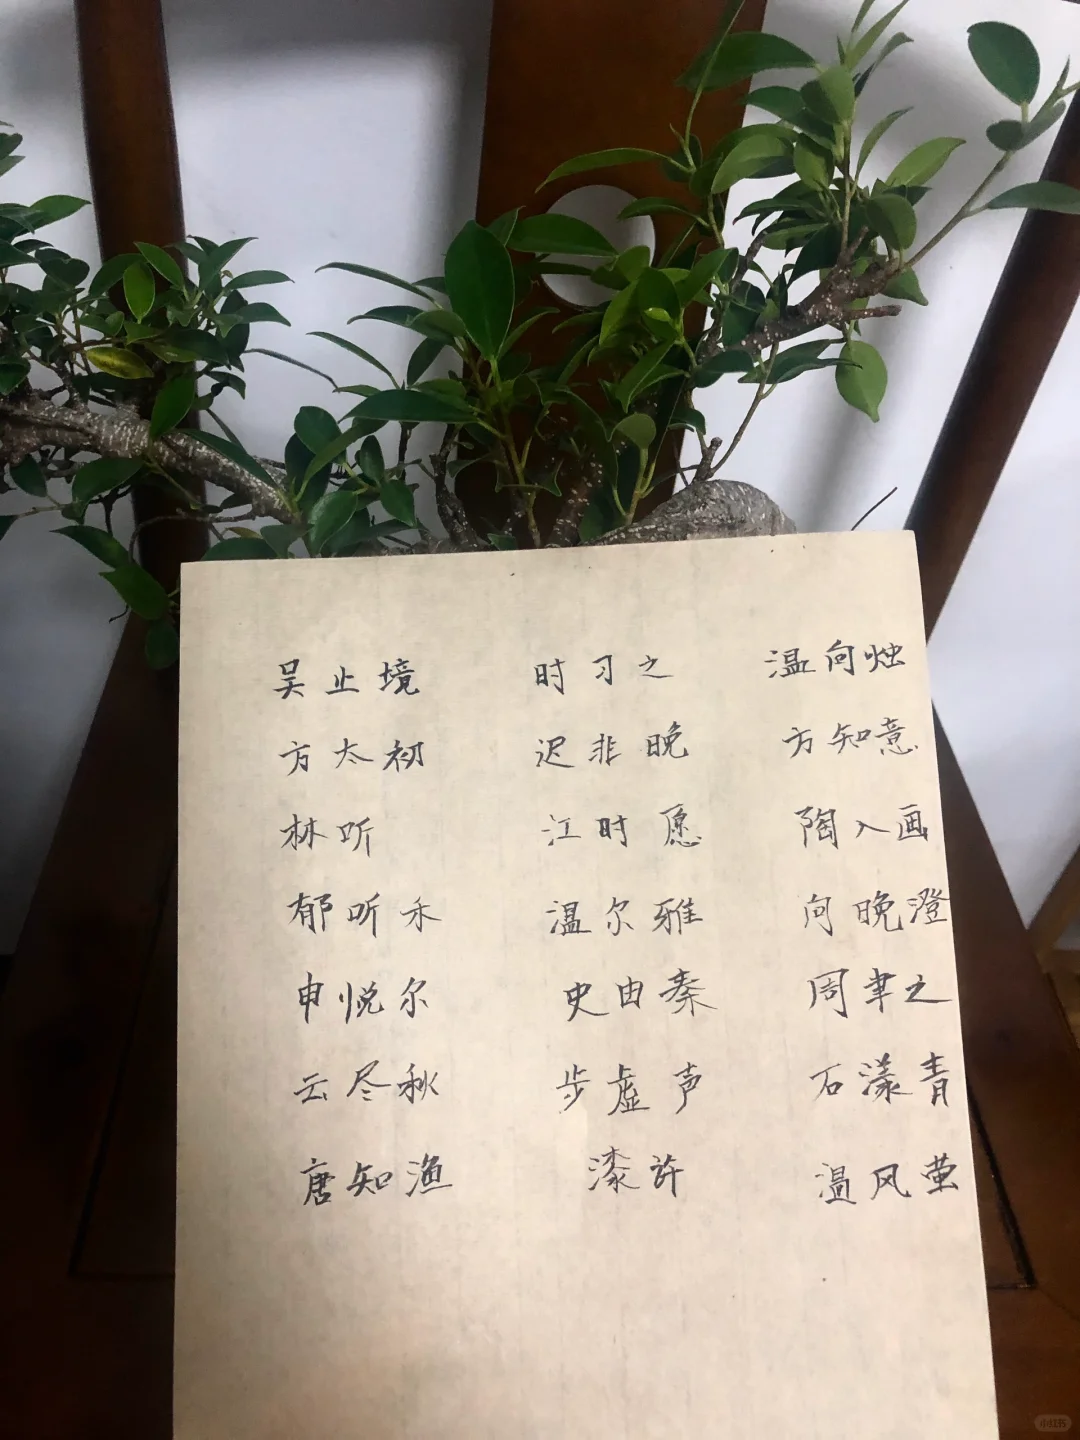 吴止境 时习之 温向烛
方太初 迟非晚 方知意
林听 江时愿 陶入画
郁听禾 温尔雅 向晚澄
申悦尔 史由秦 周聿之
云尽秋 步虚声 石漾青
唐知渔 漆许 温风萤
小红书